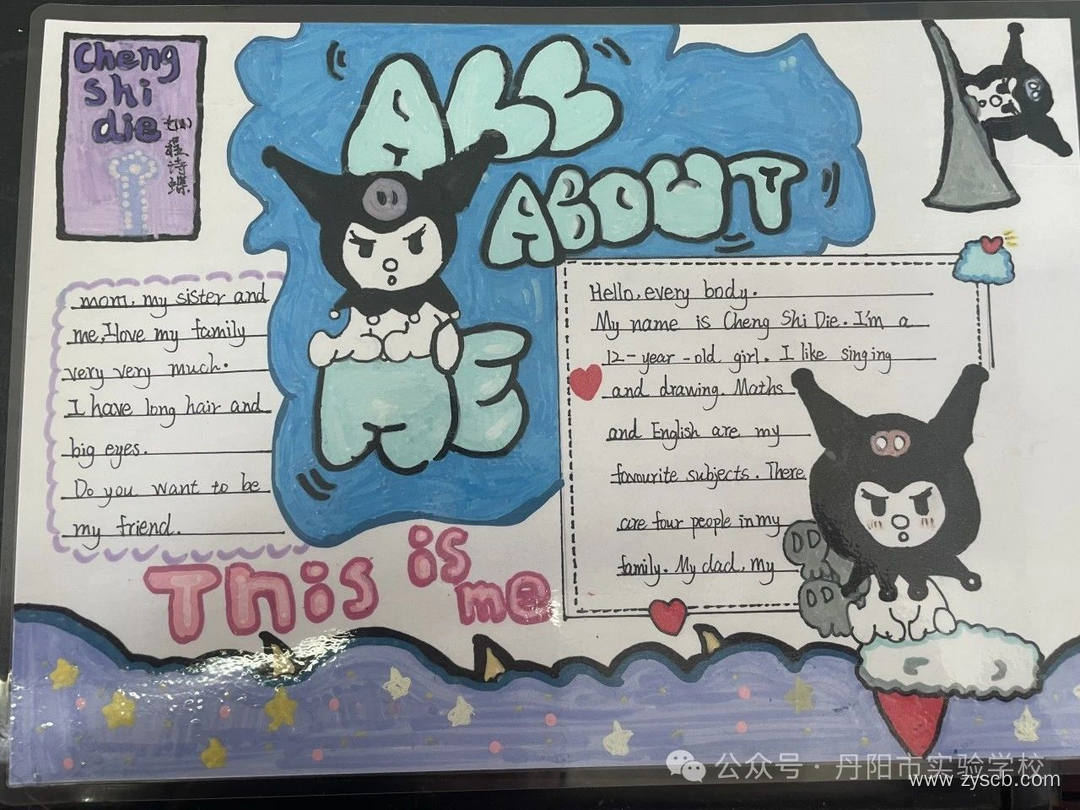 Cheng
Shi
die
程诗蝶
ALL
ABOUT
ME
Hello, every body.
My name is Cheng Shi Die. I'm a
12-year-old girl. I like singing
and drawing. Maths
and English are my
favourite subjects. There
are four people in my
family. My dad, my
mom, my sister and
me, I love my family
very very much.
I have long hair and
big eyes.
Do you want to be
my friend.
This is
me
公众号·丹阳市实验学校
www.zyscb.com